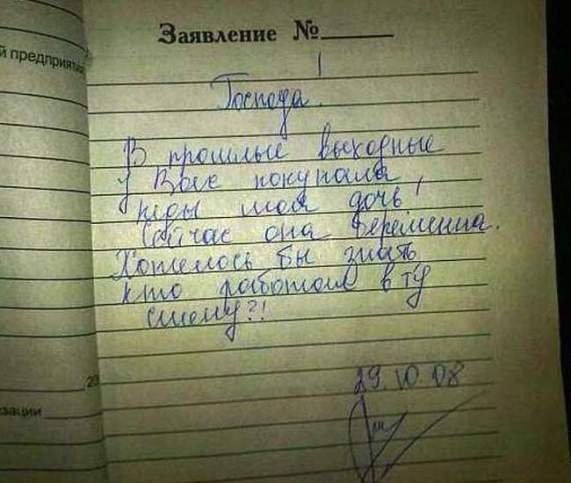 Заявление №
й предприятия
Господа!
В прошлые выходные
у Вас покупала
кеды моя дочь!
Сейчас она беременна.
Хотелось бы знать
кто работал в ту
смену?!
29.10.08
20
изации